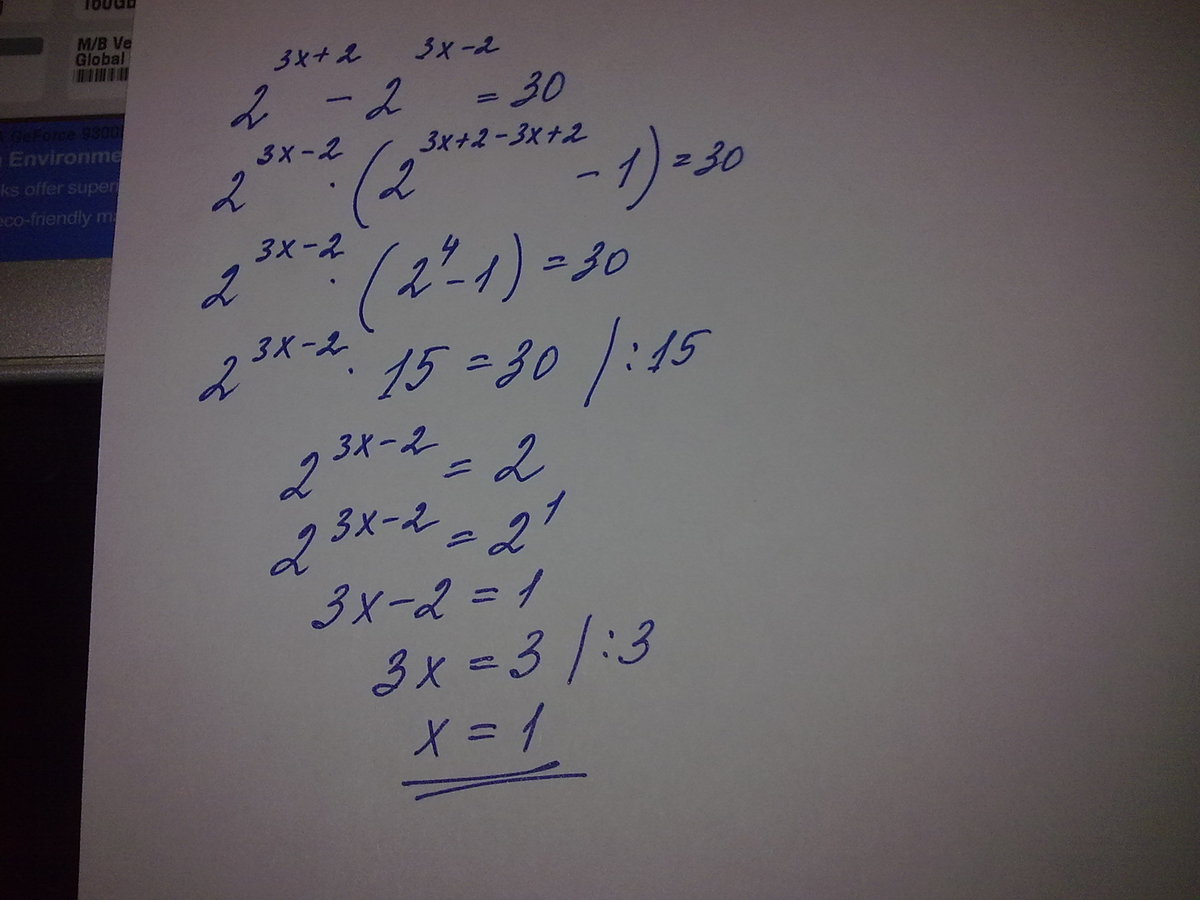 160GB
M/B Ve
Global
GeForce 9300
Environme
ks offer superi
eco-friendly ma
2^{3x+2} - 2^{3x-2} = 30
2^{3x-2} · (2^{3x+2-3x+2} - 1) = 30
2^{3x-2} · (2^4 - 1) = 30
2^{3x-2} · 15 = 30 / : 15
2^{3x-2} = 2
2^{3x-2} = 2^1
3x - 2 = 1
3x = 3 / : 3
x = 1